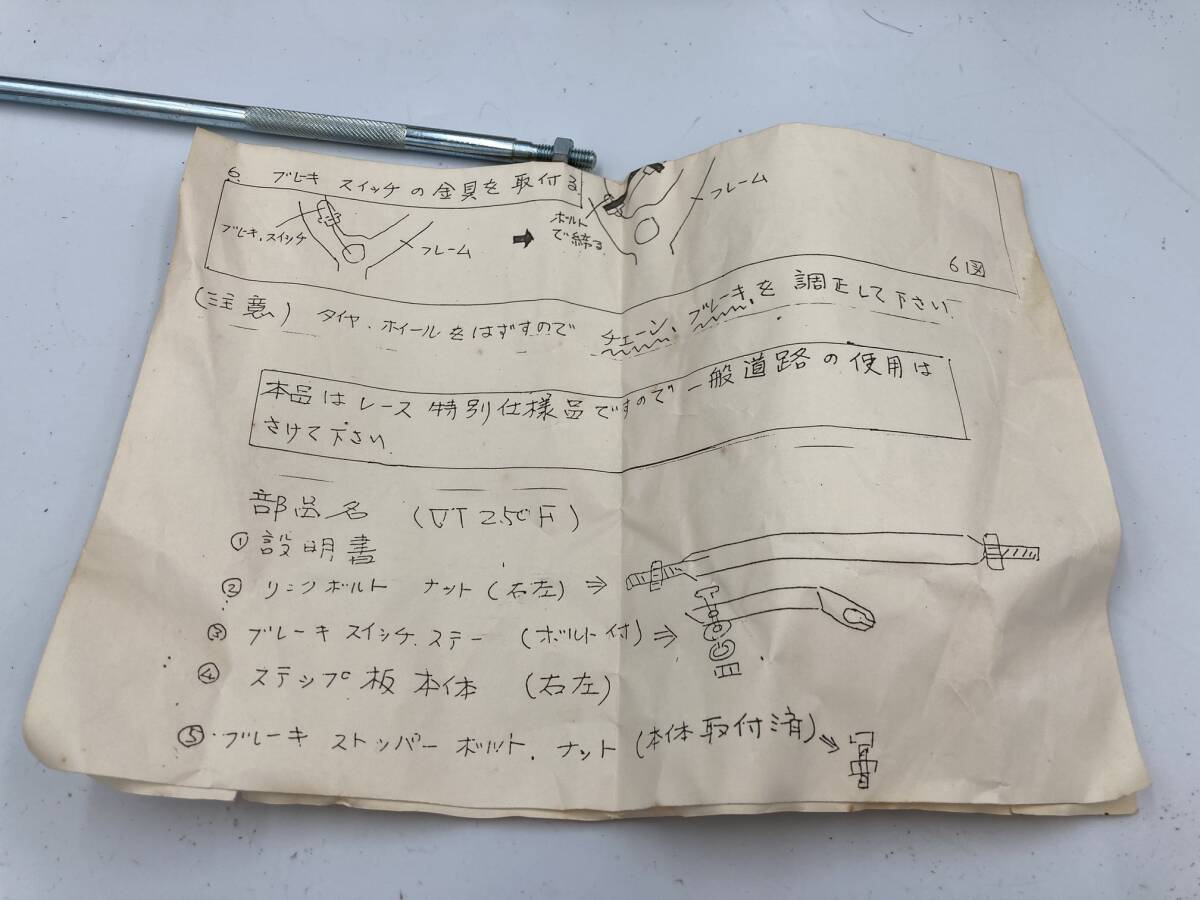 6. ブレーキ スイッチの金具を取付る
ブレーキ.スイッチ
フレーム
ボルト
で締る
フレーム
6図
(注意) タイヤ.ホイールをはずすので チェーン、ブレーキ、を調正して下さい
本品はレース特別仕様品ですので一般道路の使用は
さけて下さい
部品名 (VT250F)
① 説明書
② リンクボルト ナット(右左) ⇒
③ ブレーキスイッチ.ステー (ボルト付) ⇒
④ ステップ板本体 (右左)
⑤・ブレーキ ストッパーボルト.ナット(本体取付済) ⇒